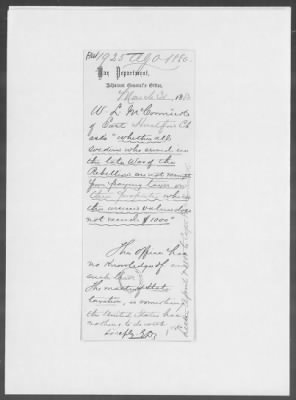 1925 AGO 1880.
War Department,
Adjutant General's Office,
March 188
W. L. McCormick
of East Ch
asks "whether all
soldiers who served in
the late War of the
Rebellion are not exempt
from paying taxes on
their property where
the value does
not exceed $1000"
This office has
no knowledge of any
such law.
The matter of State
taxation, is something
the United States has
nothing to do with.